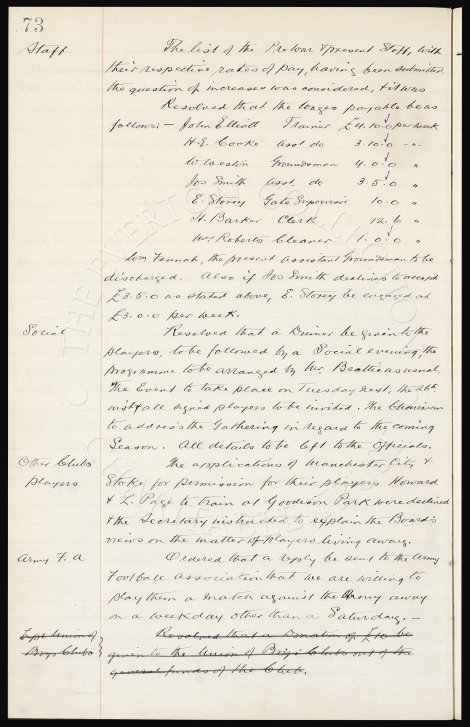 73
Staff
The list of the Pre War & present Staff, with
their respective rates of pay, having been submitted
the question of increases was considered, & it was
Resolved that the wages payable be as
follows:— John Elliott Trainer £4.10.0 per week
H.E. Cooke asst do 3.10.0 -"-
W. Weston Groundsman 4.0.0 "
Jos Smith asst. do 3.5.0 "
E. Storey Gate Supervisor 10.0 "
H. Barker Clerk 12.6 "
Mrs Roberts Cleaner 1.0.0 "
Tom Fennah, the present Assistant Groundsman to be
discharged. Also if Jos Smith declines to accept
£3.5.0 as stated above, E. Storey be engaged at
£3.0.0 per week.
Social
Resolved that a Dinner be given to the
players, to be followed by a Social evening, the
programme to be arranged by Mr. Beattie as usual.
The Event to take place on Tuesday next, the 26th.
inst & all signed players to be invited. The Chairman
to address the Gathering in regard to the coming
Season. All details to be left to the Officials.
Other Clubs
players
The applications of Manchester City &
Stoke for permission for their players Howard
& L. Page to train at Goodison Park were declined
& the Secretary instructed to explain the Board's
views on the matter of players living away.
Army F. A
Ordered that a reply be sent to the Army
Football Association that we are willing to
play them a match against the Army away
on a weekday other than a Saturday. —
Lpl Union of
Boys Clubs
Resolved that a Donation of £10 be
given to the Union of Boys' Clubs out of the
general funds of the Club.
THE EVERTON COLLECTION